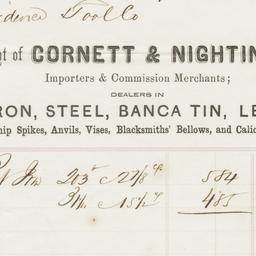 idence Tool Co
t of CORNETT & NIGHTIN
Importers & Commission Merchants;
DEALERS IN
RON, STEEL, BANCA TIN, LE
hip Spikes, Anvils, Vises, Blacksmiths' Bellows, and Calic
203 27/8 584
31 15½ 485